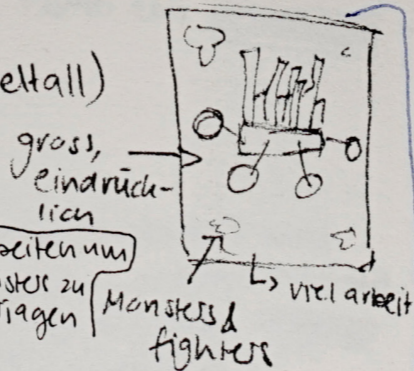 eltall)
gross,
eindrück-
lich
eiten um
sters zu
Monsters &
fighters
viel arbeit